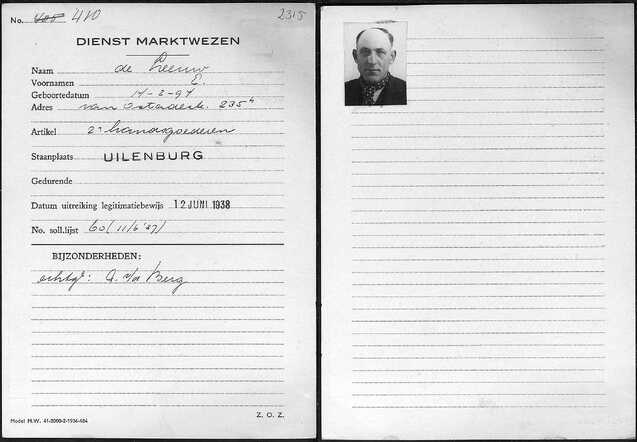 No. 400 410 2315
DIENST MARKTWEZEN
Naam de Leeuw
Voornamen E.
Geboortedatum 14-2-94
Adres van Ostadestr. 235 h
Artikel 2e handsgoederen
Staanplaats UILENBURG
Gedurende
Datum uitreiking legitimatiebewijs 12 JUNI 1938
No. soll.lijst 60 (11/6 '37)
BIJZONDERHEDEN:
echtgt: A. v/d Berg
Model M.W. 41-5000-2-1936-484
Z. O. Z.